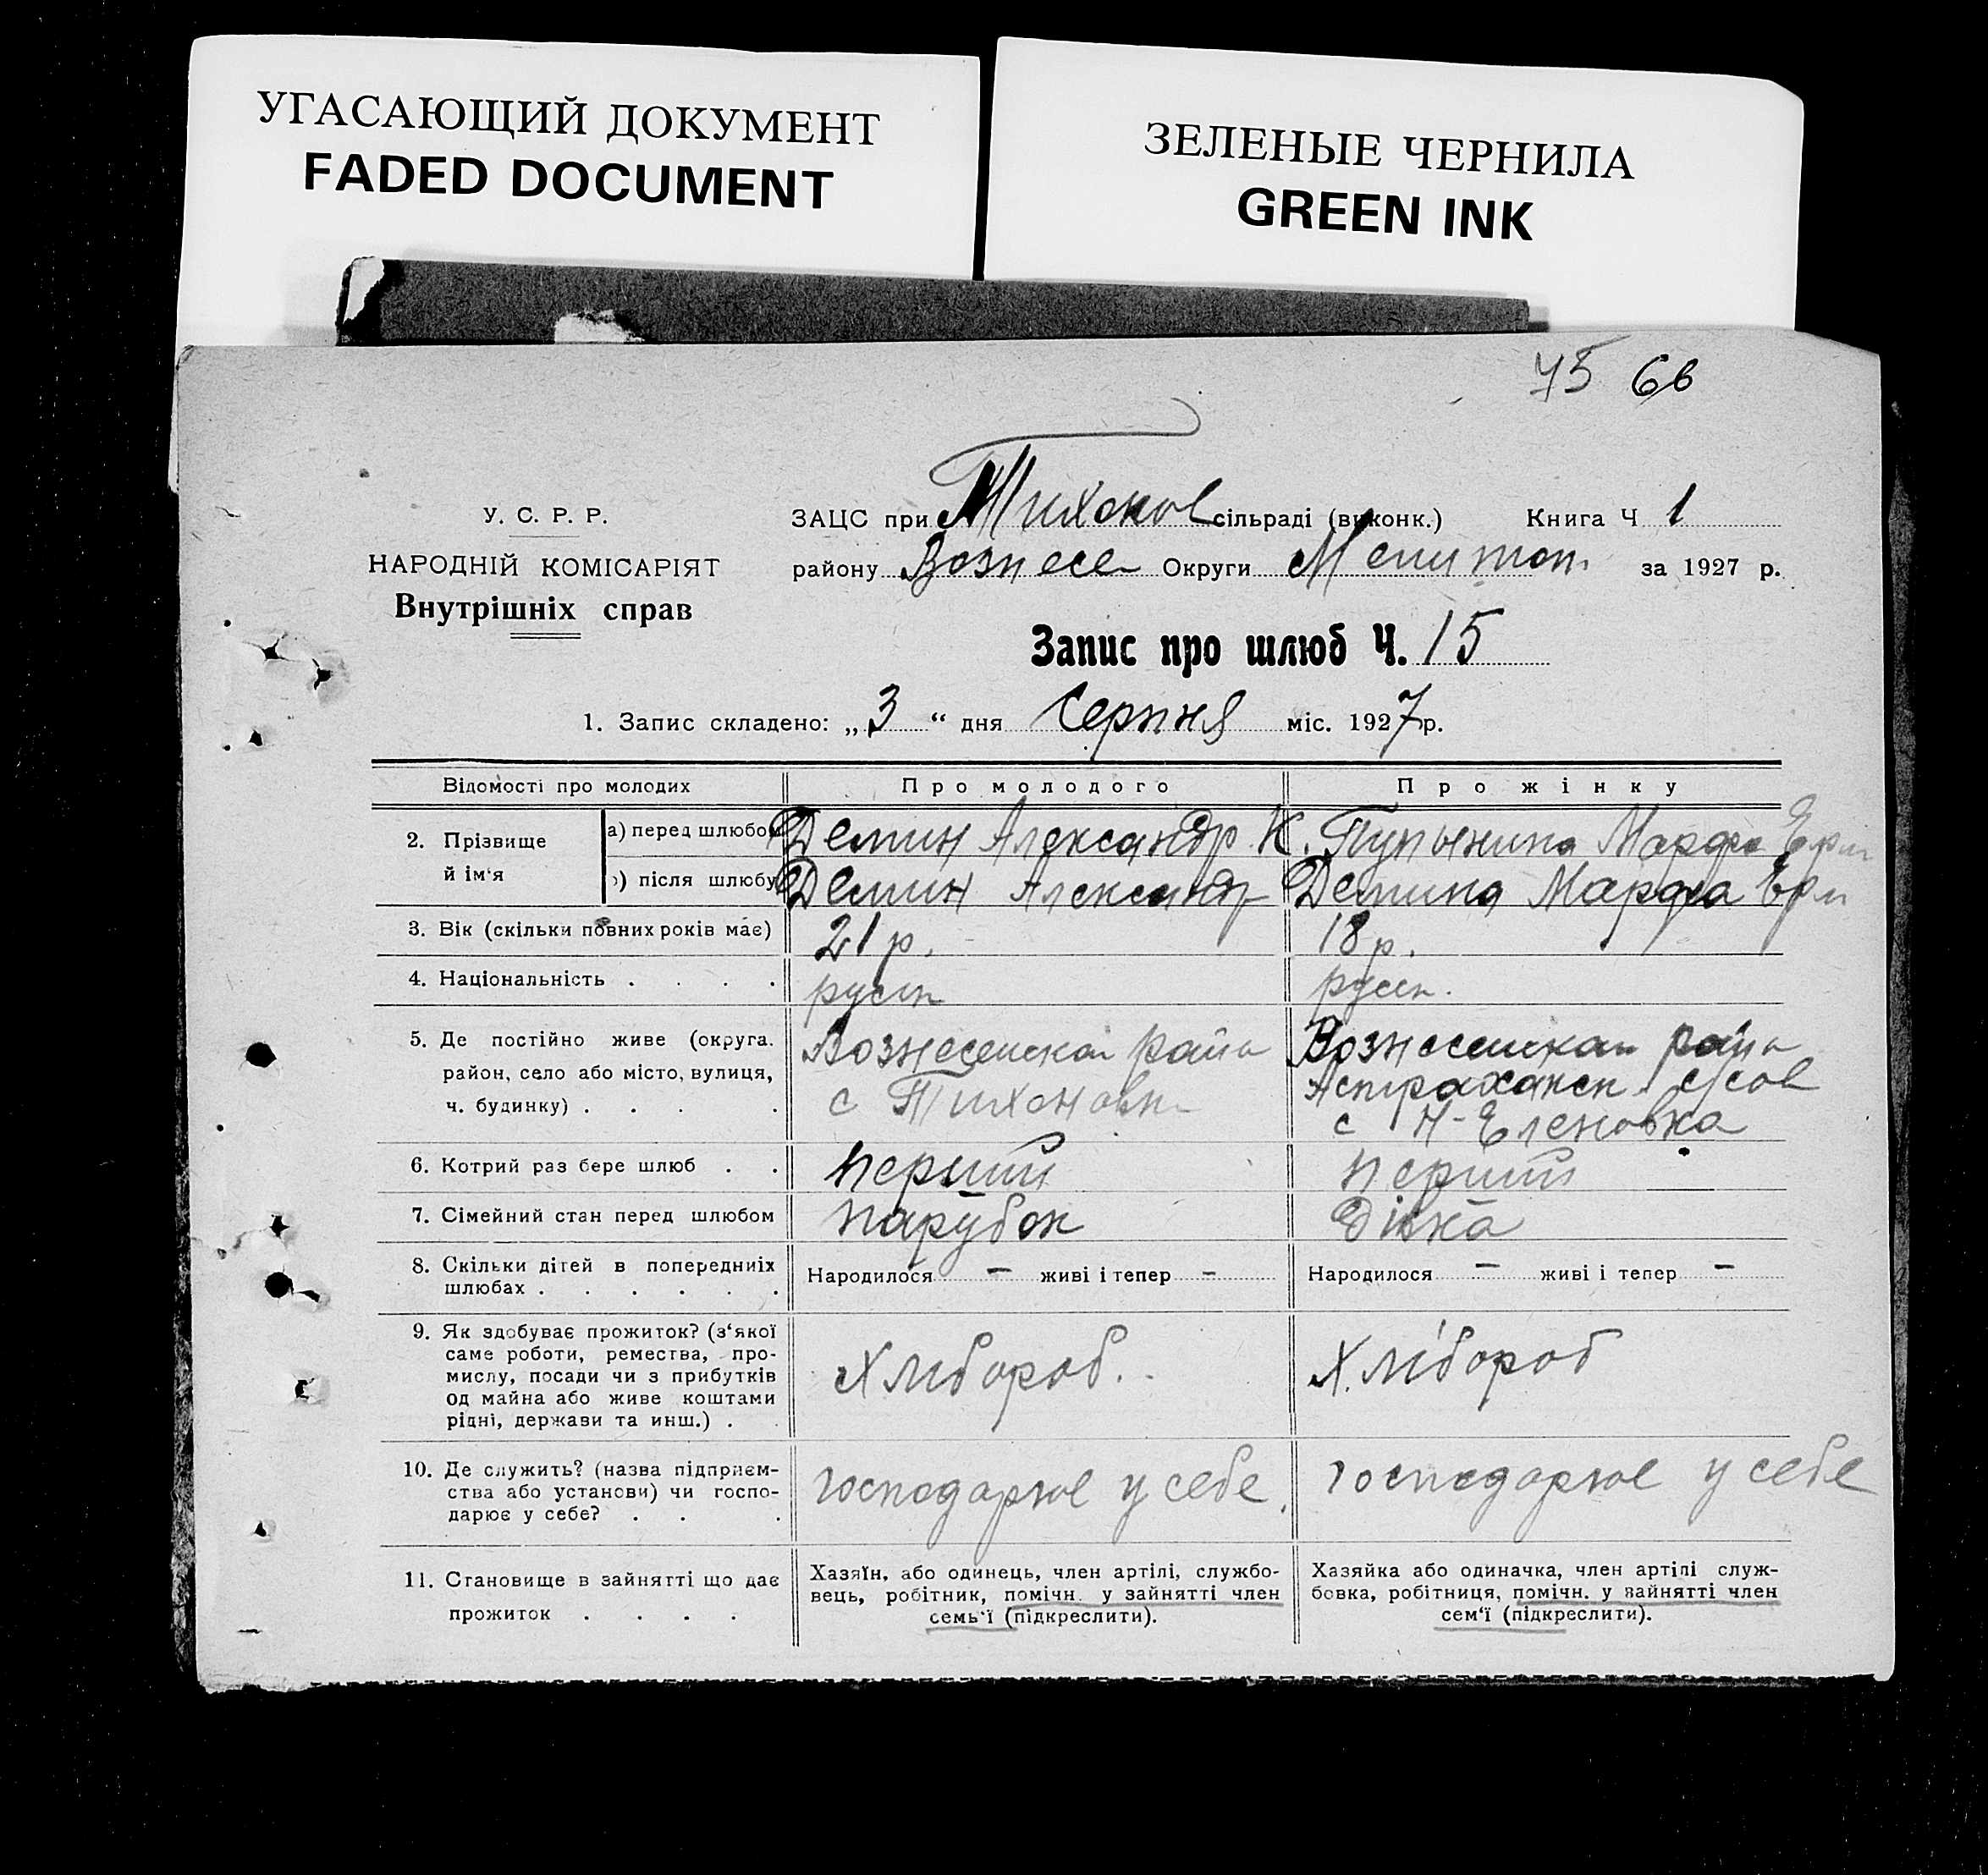 УГАСАЮЩИЙ ДОКУМЕНТ
FADED DOCUMENT
ЗЕЛЕНЫЕ ЧЕРНИЛА
GREEN INK
75 66
У. С. Р. Р.
НАРОДНІЙ КОМІСАРІЯТ
Внутрішніх справ
ЗАЦС при Тихонов сільраді (виконк.) Книга Ч 1
району Вознесе Округи Мелитоп. за 1927 р.
Запис про шлюб Ч. 15
1. Запис складено: „3“ дня Серпня міс. 1927 р.
Відомості про молодих Про молодого Про жінку
2. Прізвище й ім‘я
а) перед шлюбом Демин Александр К. Тупынина Марфа Ерм
б) після шлюбу Демин Александр Демина Марфа Ерм
3. Вік (скільки повних років має) 21 р. 18 р.
4. Національність . . . . руск русск.
5. Де постійно живе (округа. Вознесенска райн Вознесенскан райн
район, село або місто, вулиця, с Тихоновк Астраханск с/сов
ч. будинку) . . . . с Н-Еленовка
6. Котрий раз бере шлюб . . перший перший
7. Сімейний стан перед шлюбом парубок дівка
8. Скільки дітей в попередниіх Народилося — живі і тепер — Народилося — живі і тепер —
шлюбах . . . . . .
9. Як здобуває прожиток? (з‘якої
саме роботи, ремества, про-
мислу, посади чи з прибутків Хлібороб. Хлібороб
од майна або живе коштами
рідні, держави та инш.) .
10. Де служить? (назва підприєм-
ства або установи) чи госпо- господарює у себе господарює у себе
дарює у себе? . . .
11. Становище в зайнятті що дає
прожиток . . . .
Хазяїн, або одинець, член артілі, службо-
вець, робітник, помічн. у зайнятті член
семь‘ї (підкреслити).
Хазяйка або одиначка, член артілі служ-
бовка, робітниця, помічн. у зайнятті член
сем‘ї (підкреслити).